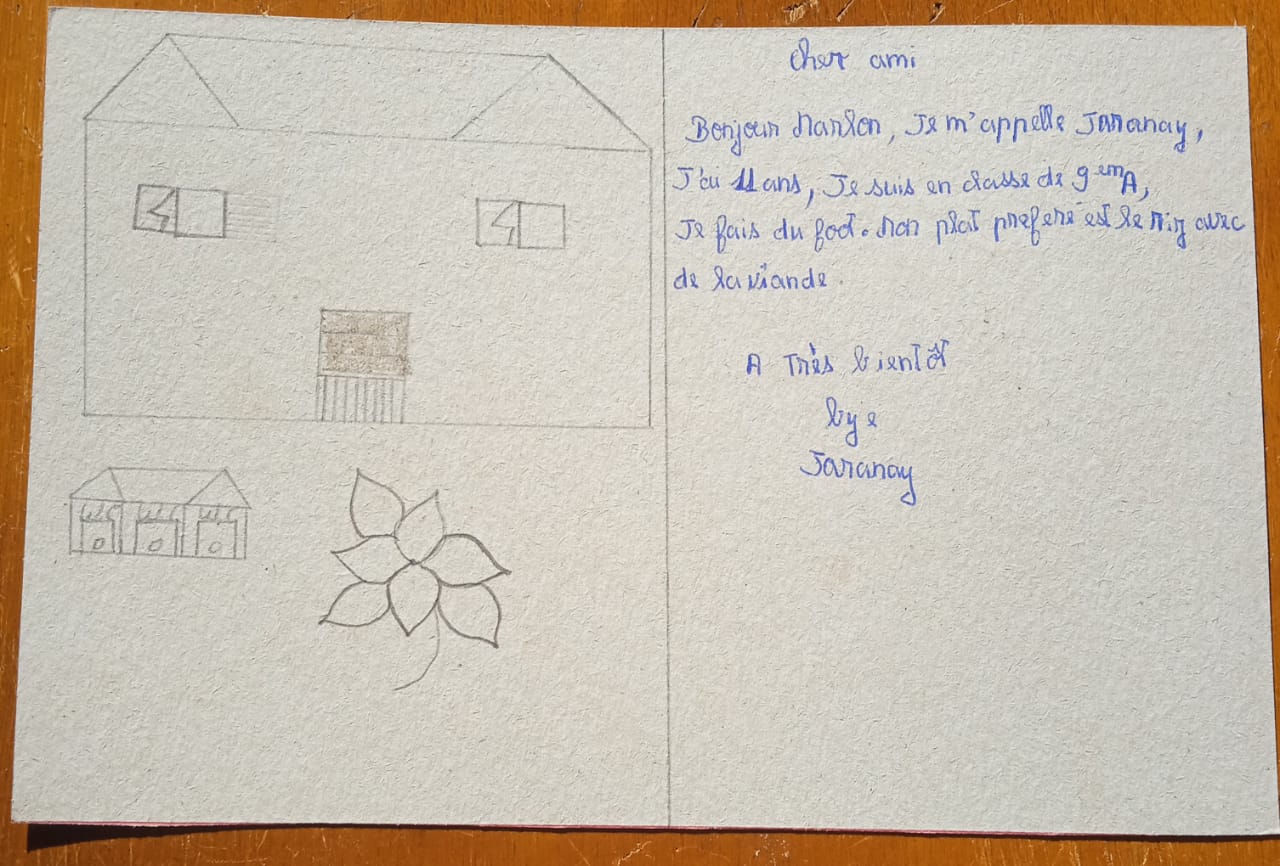 Cher ami
Bonjour Manlon, Je m'appelle Jaranay,
J'ai 11 ans, Je suis en classe de 9emA,
Je fais du foot. Mon plat prefere est le riz avec
de la viande.
A Très bientôt
bye
Jaranay
WC WC WC